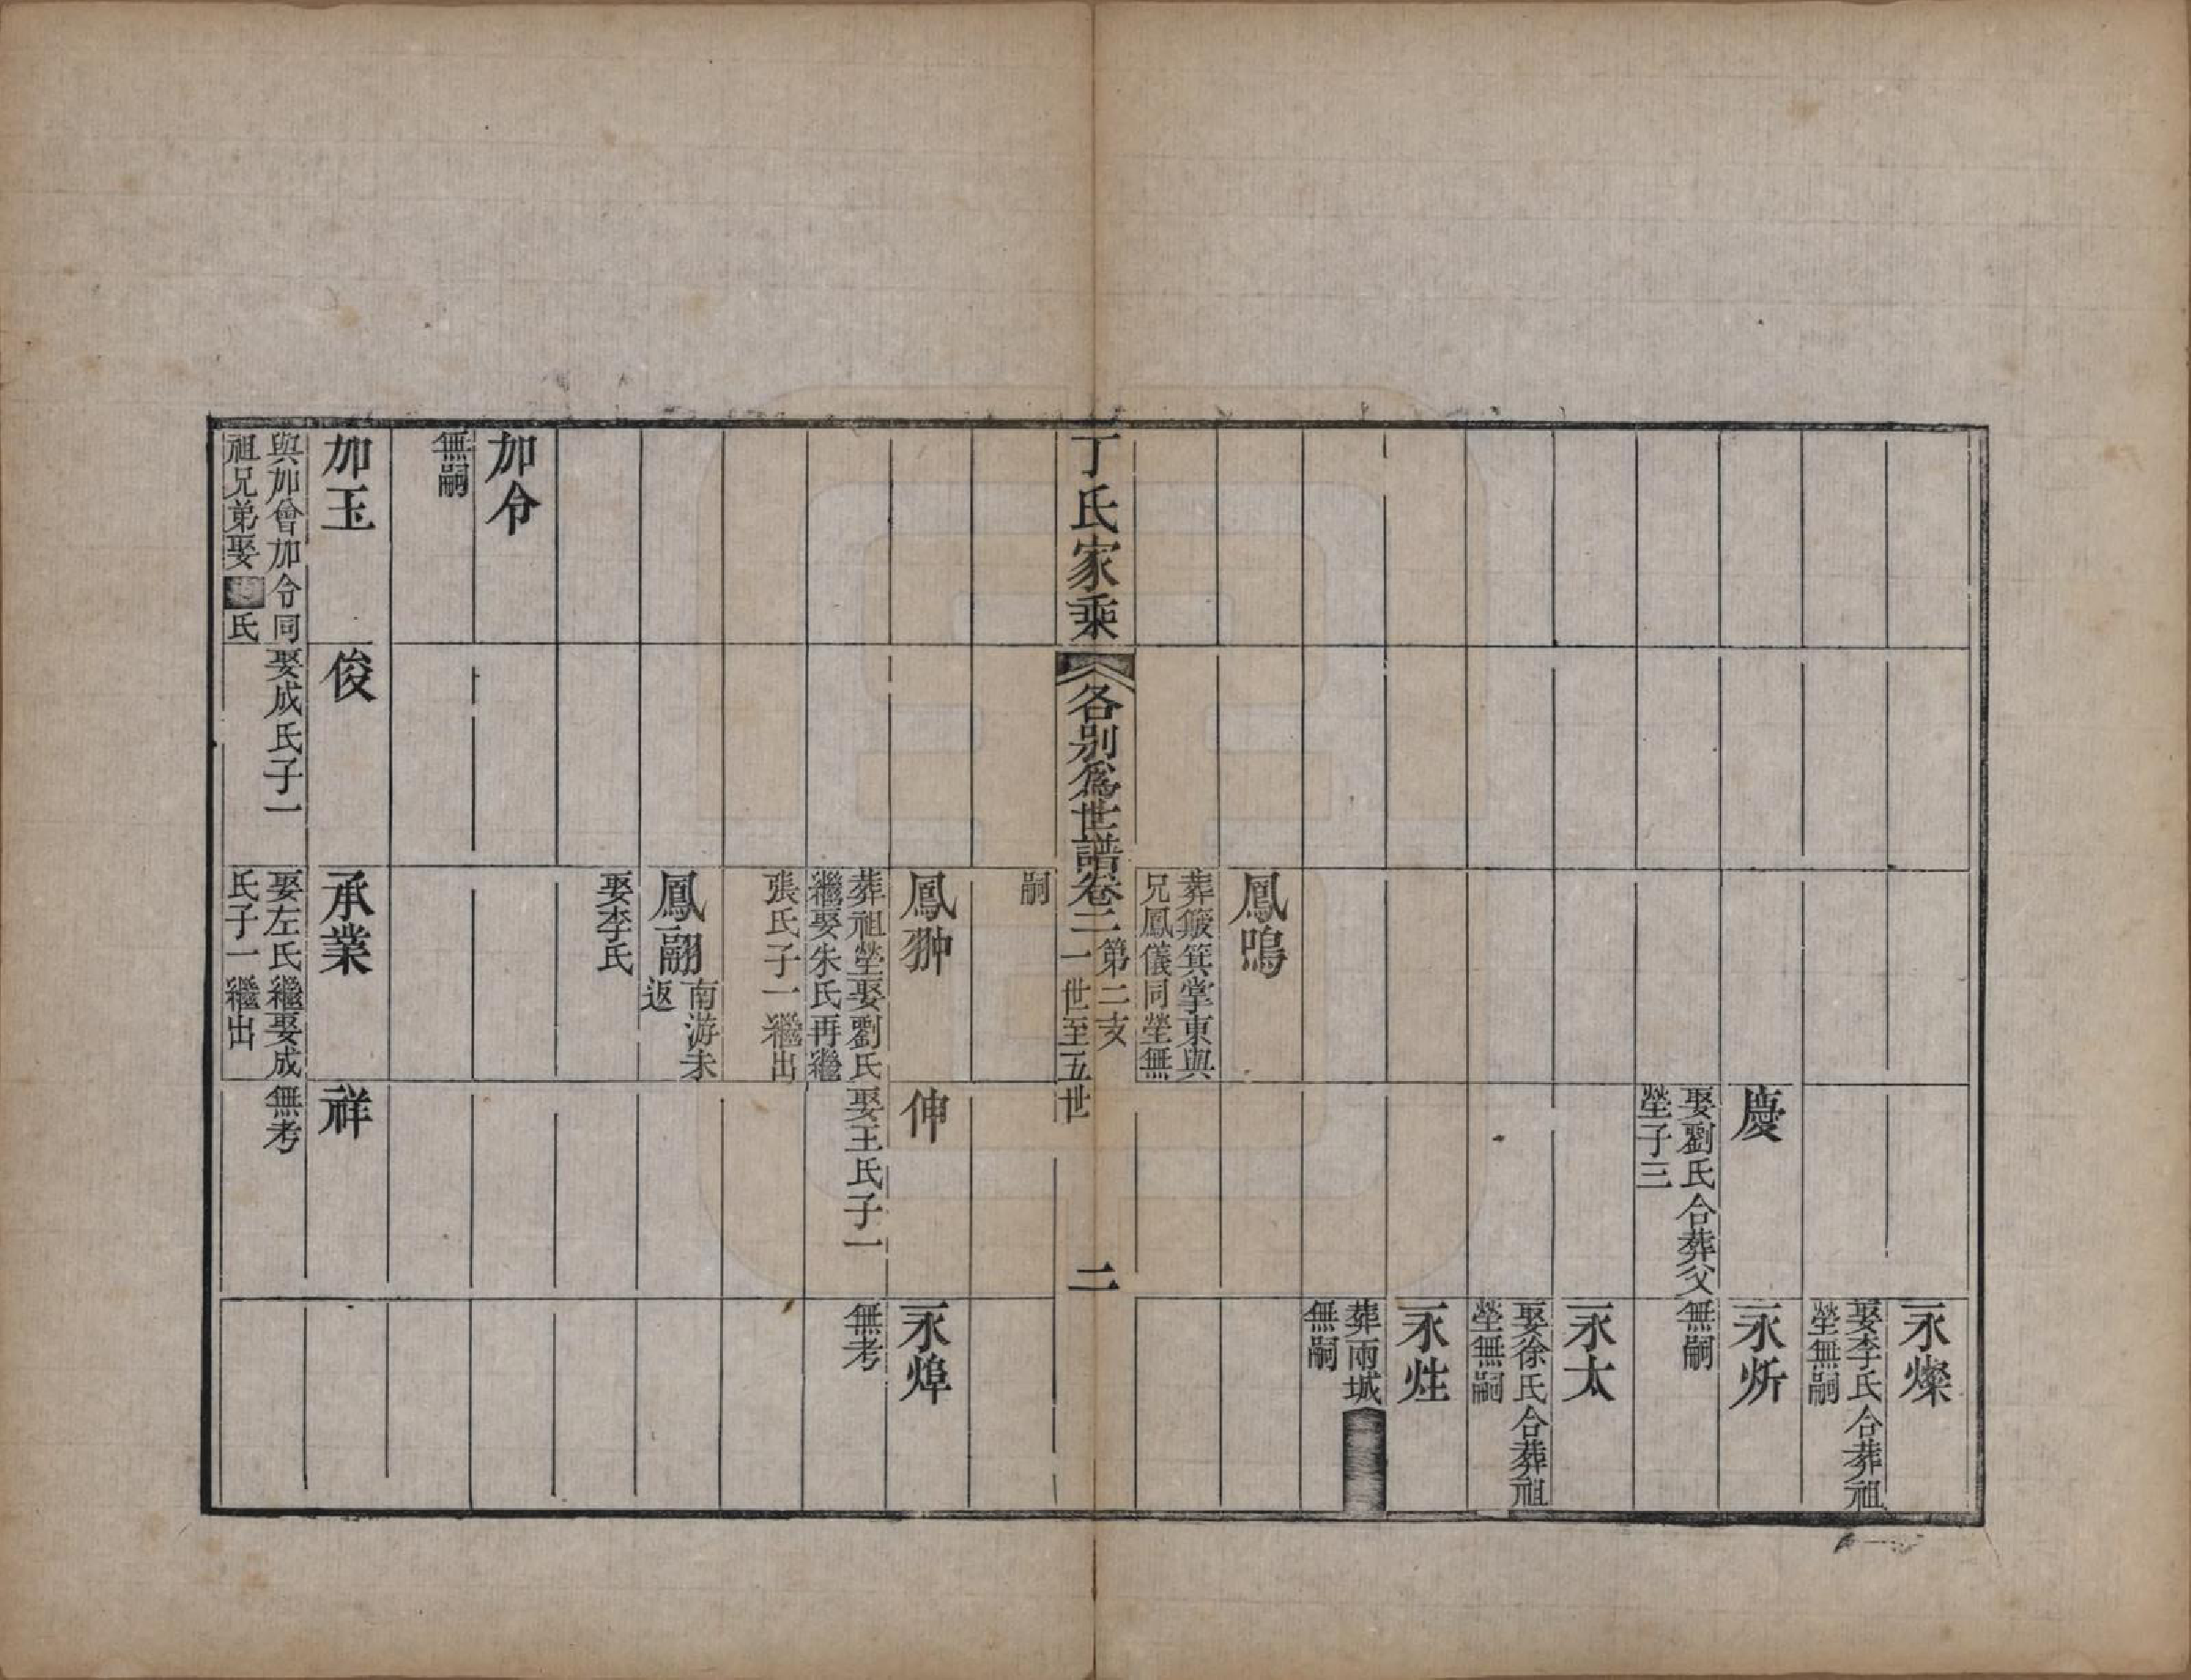 永燦
娶李氏合葬祖
塋無嗣
慶
娶劉氏合葬父
塋子三
永炘
無嗣
永太
娶徐氏合葬祖
塋無嗣
永烓
葬雨城
無嗣
鳳鳴
葬簸箕掌東與
兄鳳儀同塋無
丁氏家乘
各別爲世譜卷二
第二支
一世至五世
二
嗣
鳳翀
葬祖塋娶劉氏
繼娶朱氏再繼
張氏子一繼出
伸
娶王氏子一
永焞
無考
鳳翮
南游未
返
娶李氏
加令
無嗣
加玉
與加會加令同
祖兄弟娶
氏
俊
娶成氏子一
承業
娶左氏繼娶成
氏子一繼出
祥
無考